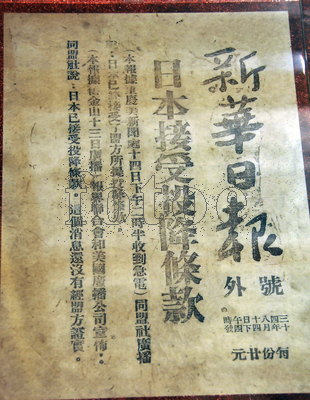 新華日報
號外
三十四年八月十四日下午四時發
每份廿元
日本接受投降條款
（本報據重慶美新聞處十四日下午二時半收到急電）同盟社廣播
：日本已接受盟方所提投降條款。
（本報據舊金山十三日廣播）報界聯合會和美國廣播公司宣佈：
同盟社說：日本已接受投降條款。這個消息還沒有經盟方證實。